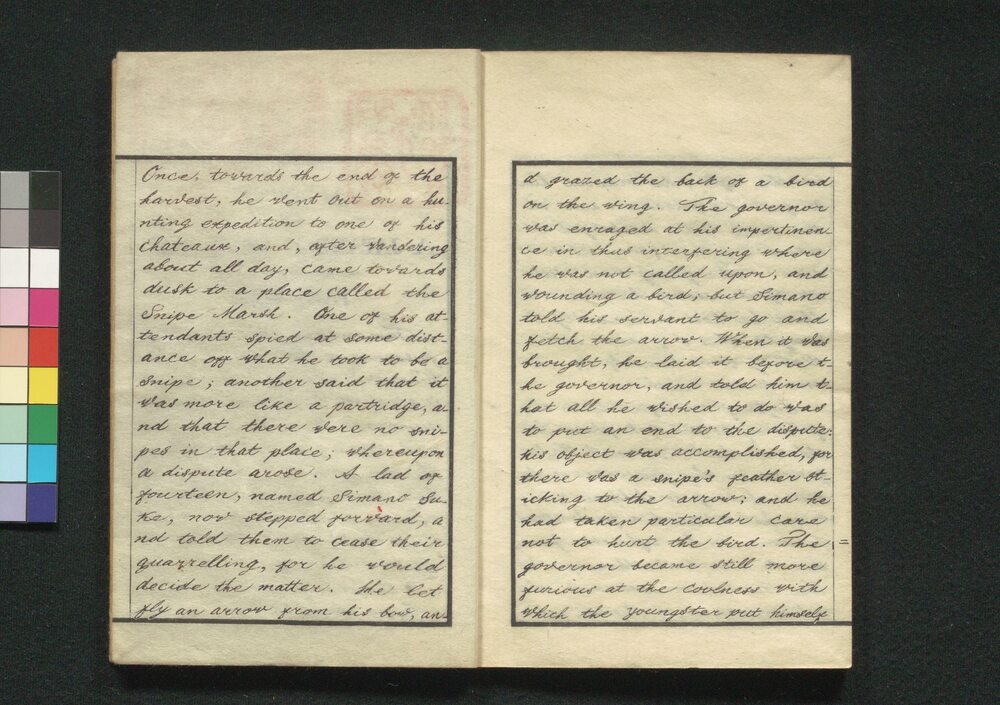 Once, towards the end of the
harvest, he went out on a hu-
nting expedition to one of his
chateaux, and, after wandering
about all day, came towards
dusk to a place called the
Snipe Marsh. One of his at-
tendants spied at some dist-
ance off what he took to be a
snipe; another said that it
was more like a partridge, a-
nd that there were no sni-
pes in that place; whereupon
a dispute arose. A lad of
fourteen, named Simano Su-
ke, now stepped forward, a
nd told them to cease their
quarrelling, for he would
decide the matter. He let
fly an arrow from his bow, an-
d grazed the back of a bird
on the wing. The governor
was enraged at his impertinen-
ce in thus interfering where
he was not called upon, and
wounding a bird; but Simano
told his servant to go and
fetch the arrow. When it was
brought, he laid it before t-
he governor, and told him t-
hat all he wished to do was
to put an end to the dispute:
his object was accomplished, for
there was a snipe's feather st-
icking to the arrow; and he
had taken particular care
not to hurt the bird. The
governor became still more
furious at the coolness with
which the youngster put himself